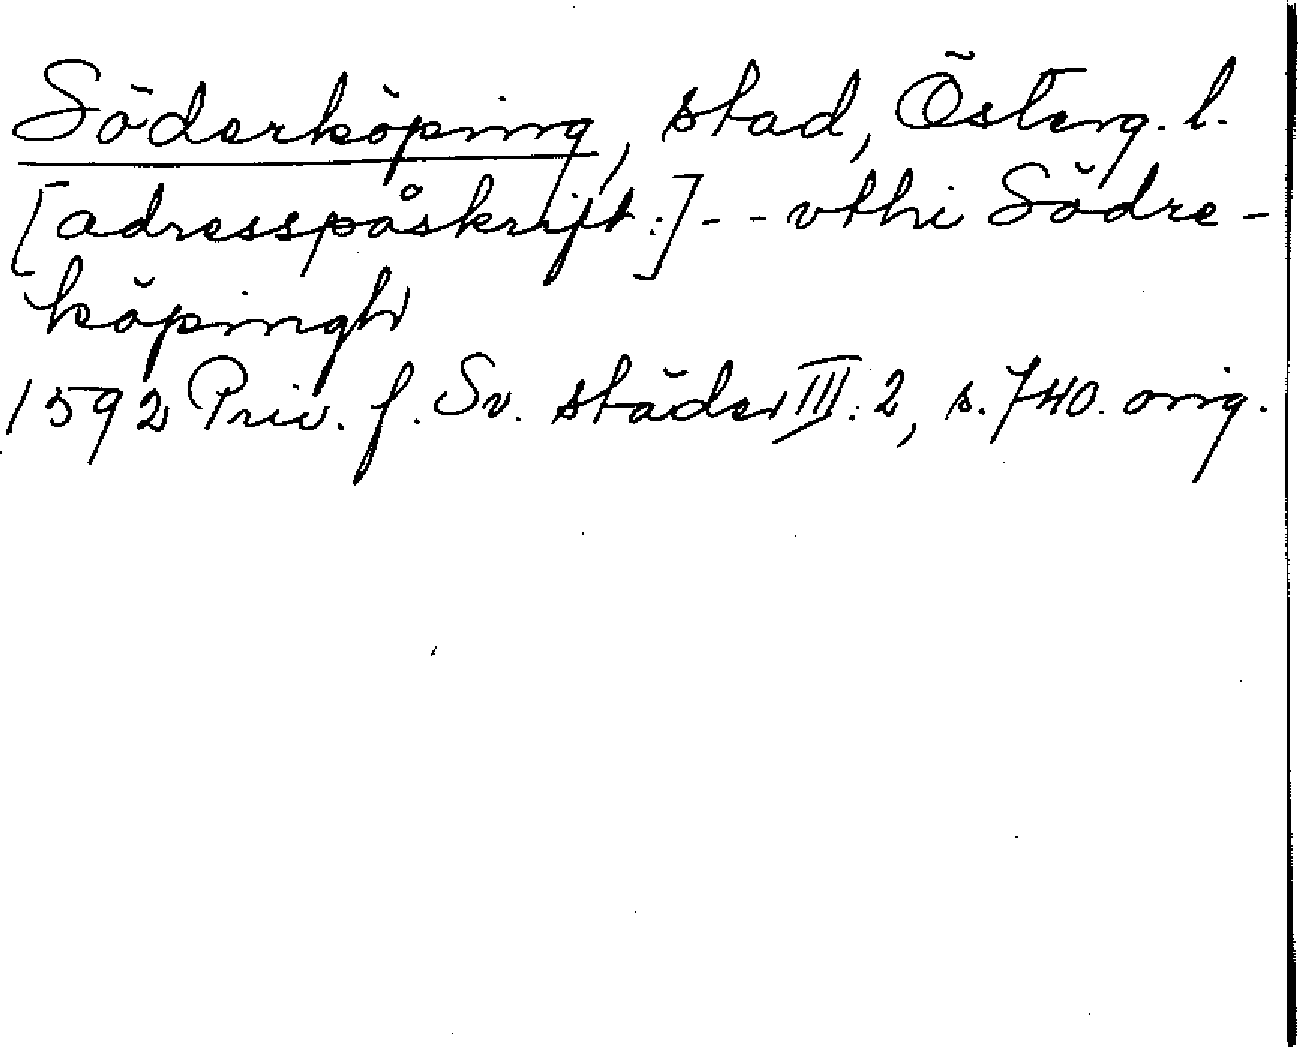 Söderköping, stad, Österg. l.
[adresspåskrift:] - - vthi Södre-
köpingh
1592 Priv. f. Sv. städer III: 2, s. 740. orig.